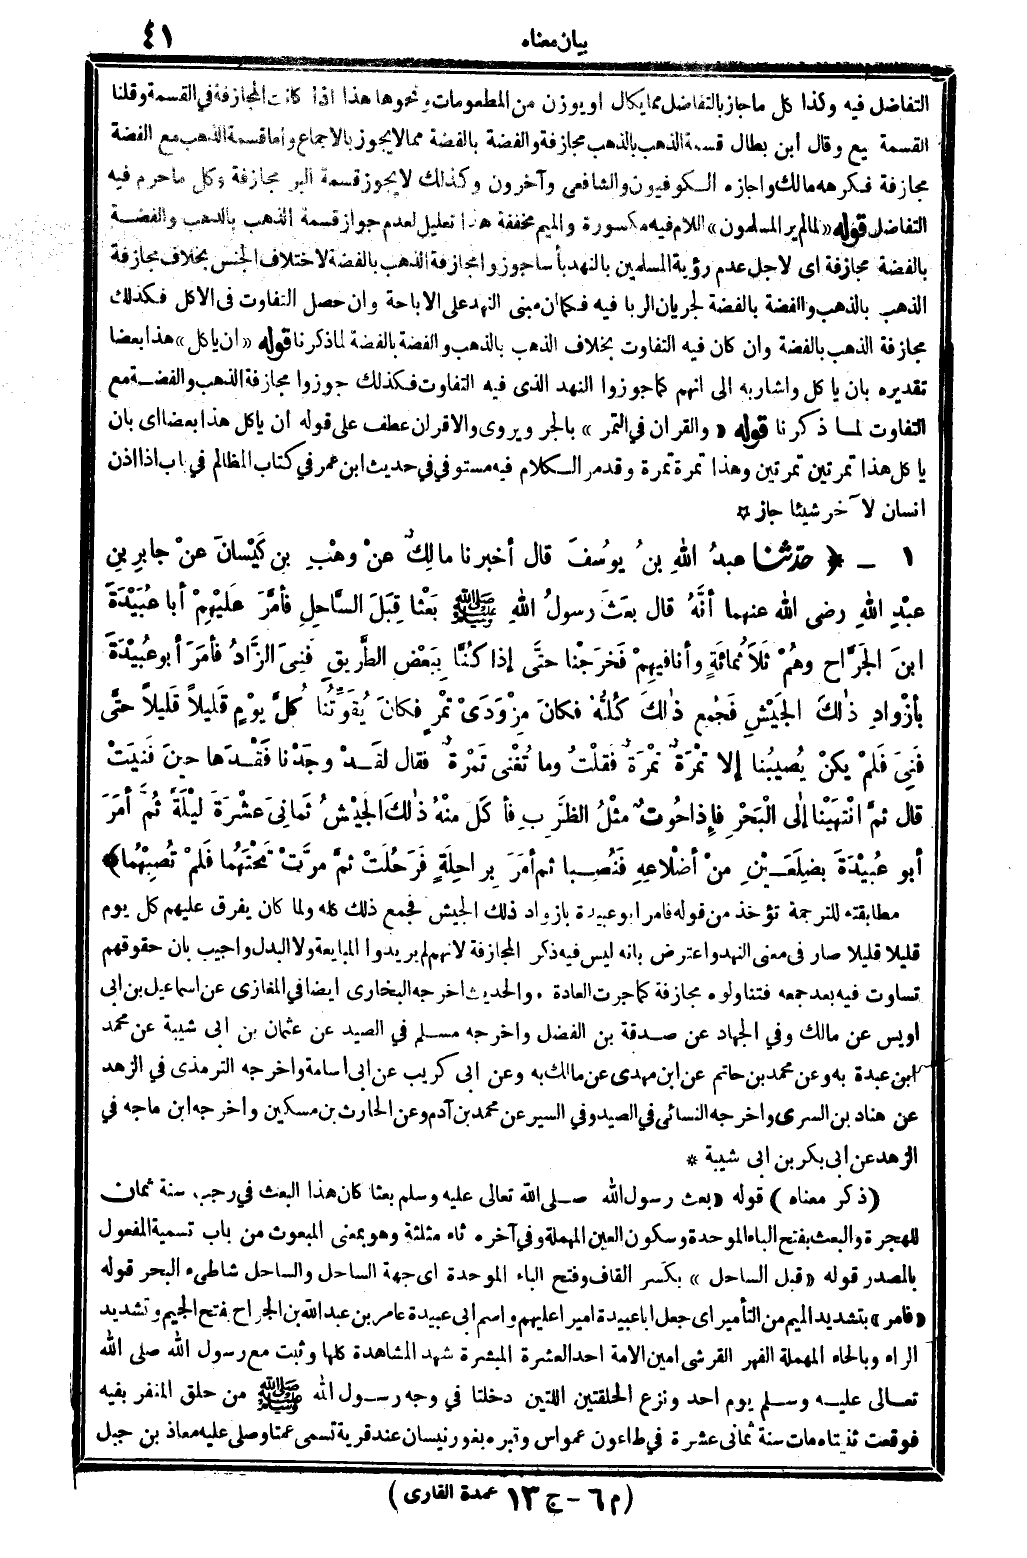 بيان معناه ٤١
التفاضل فيه وكذا كل ما جاز بالتفاضل مما يكال او يوزن من المطعومات ونحوها هذا اذا كانت المجازفة في القسمة وقلنا
القسمة بيع وقال أبن بطال قسمة الذهب بالذهب مجازفة والفضة بالفضة مما لا يجوز بالاجماع وأما قسمة الذهب مع الفضة
مجازفة فكرهه مالك واجازه الكوفيون والشافعى وآخرون وكذلك لا يجوز قسمة البر مجازفة وكل ما حرم فيه
التفاضل قوله «لما لم ير المسلمون» اللام فيه مكسورة والميم مخففة هذا تعليل لعدم جواز قسمة الذهب بالذهب والفضة
بالفضة مجازفة اى لاجل عدم رؤية المسلمين بالنهد بأسا جوزوا مجازفة الذهب بالفضة لاختلاف الجنس بخلاف مجازفة
الذهب بالذهب والفضة بالفضة لجريان الربا فيه فكما ان مبنى النهد على الاباحة وان حصل التفاوت فى الاكل فكذلك
مجازفة الذهب بالفضة وان كان فيه التفاوت بخلاف الذهب بالذهب والفضة بالفضة لما ذكرنا قوله «ان ياكل» هذا بعضا
تقديره بان ياكل واشار به الى انهم كما جوزوا النهد الذى فيه التفاوت فكذلك جوزوا مجازفة الذهب والفضة مع
التفاوت لما ذكرنا قوله «والقران في التمر» بالجر ويروى والاقران عطف على قوله ان ياكل هذا بعضا اى بان
ياكل هذا تمرتين تمرتين وهذا تمرة تمرة وقد مر الكلام فيه مستوفى في حديث ابن عمر في كتاب المظالم في باب اذا اذن
انسان لآخر شيئا جاز ☆
١ - ﴿ حدّثنا عبدُ اللهِ بنُ يوسُفَ قال أخبرنا مالِكٌ عنْ وهْبِ بنِ كَيْسانَ عنْ جابِرِ بنِ
عبْدِ اللهِ رضى الله عنهما أنَّهُ قال بعَثَ رسولُ اللهِ ﷺ بَعْثا قِبَلَ السَّاحلِ فأمَّرَ علَيْهِمْ أبا عُبَيْدَةَ
ابنَ الجَرَّاحِ وهُمْ ثَلاَثُمائَةٍ وأنا فيهِمْ فخَرَجْنا حتَّى إذا كُنَّا بِبَعْضِ الطَّريقِ فَنِىَ الزَّادُ فأمَرَ أبو عُبَيْدَةَ
بأزْوادِ ذٰلكَ الجَيْشِ فَجُمِع ذٰلكَ كُلُّهُ فكانَ مِزْوَدَىْ تْمرٍ فكانَ يُقَوِّتُنا كُلَّ يوْمٍ قَليلاً قَليلاً حتَّى
فَنِىَ فَلمْ يكنْ يُصِيبُنا إلا تمْرَةٌ تمْرَةٌ فقلْتُ وما تُغْنى تَمْرةٌ فقال لقَدْ وجَدْنا فَقْدَها حينَ فَنِيَتْ
قال ثمَّ انْتهَيْنا إلى الْبَحْرِ فإِذا حُوتٌ مثْلُ الظَّرِبِ فأكَلَ منْهُ ذٰلكَ الجَيْشُ ثمانِىَ عشْرَةَ ليْلَةً ثُمَّ أمَرَ
أبو عُبيْدَةَ بضِلَعَيْنِ منْ أضْلاعِهِ فَنُصِبا ثم أمَرَ بِراحِلَةٍ فَرَحُلَتْ ثمَّ مرَّتْ تحْتَهُما فَلمْ تُصِبْهُما﴾
مطابقته للترجمة تؤخذ من قوله فامر ابو عبيدة بازواد ذلك الجيش فجمع ذلك كله ولما كان يفرق عليهم كل يوم
قليلا قليلا صار فى معنى النهد واعترض بانه ليس فيه ذكر المجازفة لانهم لم يريدوا المبايعة ولا البدل واجيب بان حقوقهم
تساوت فيه بعد جمعه فتناولوه مجازفة كما جرت العادة . والحديث اخرجه البخارى ايضا في المغازى عن اسماعيل بن ابى
اويس عن مالك وفي الجهاد عن صدقة بن الفضل واخرجه مسلم في الصيد عن عثمان بن ابى شيبة عن محمد
ابن عبدة به وعن محمد بن حاتم عن ابن مهدى عن مالك به وعن ابى كريب عن ابى أسامة واخرجه الترمذى في الزهد
عن هناد بن السرى واخرجه النسائى في الصيد وفي السير عن محمد بن آدم وعن الحارث بن مسكين واخرجه ابن ماجه في
الزهد عن ابى بكر بن ابى شيبة *
(ذكر معناه) قوله «بعث رسول الله صلى الله تعالى عليه وسلم بعثا كان هذا البعث في رجب سنة ثمان
للهجرة والبعث بفتح الباء الموحدة وسكون العين المهملة وفي آخره ثاء مثلثة وهو بمعنى المبعوث من باب تسمية المفعول
بالمصدر قوله «قبل الساحل» بكسر القاف وفتح الباء الموحدة اى جهة الساحل والساحل شاطىء البحر قوله
«فامر» بتشديد الميم من التأمير اى جعل ابا عبيدة اميرا عليهم واسم ابى عبيدة عامر بن عبدالله بن الجراح بفتح الجيم وتشديد
الراء وبالحاء المهملة الفهر القرشى امين الامة احد العشرة المبشرة شهد المشاهدة كلها وثبت مع رسول الله صلى الله
تعالى عليه وسلم يوم احد ونزع الحلقتين اللتين دخلتا في وجه رسول الله ﷺ من حلق المغفر بفيه
فوقعت ثنيتاه مات سنة ثمانى عشرة في طاعون عمواس وقبره بغور نيسان عند قرية تسمى عمتا وصلى عليه معاذ بن جبل
(م ٦ - ج ١٣ عمدة القارى)